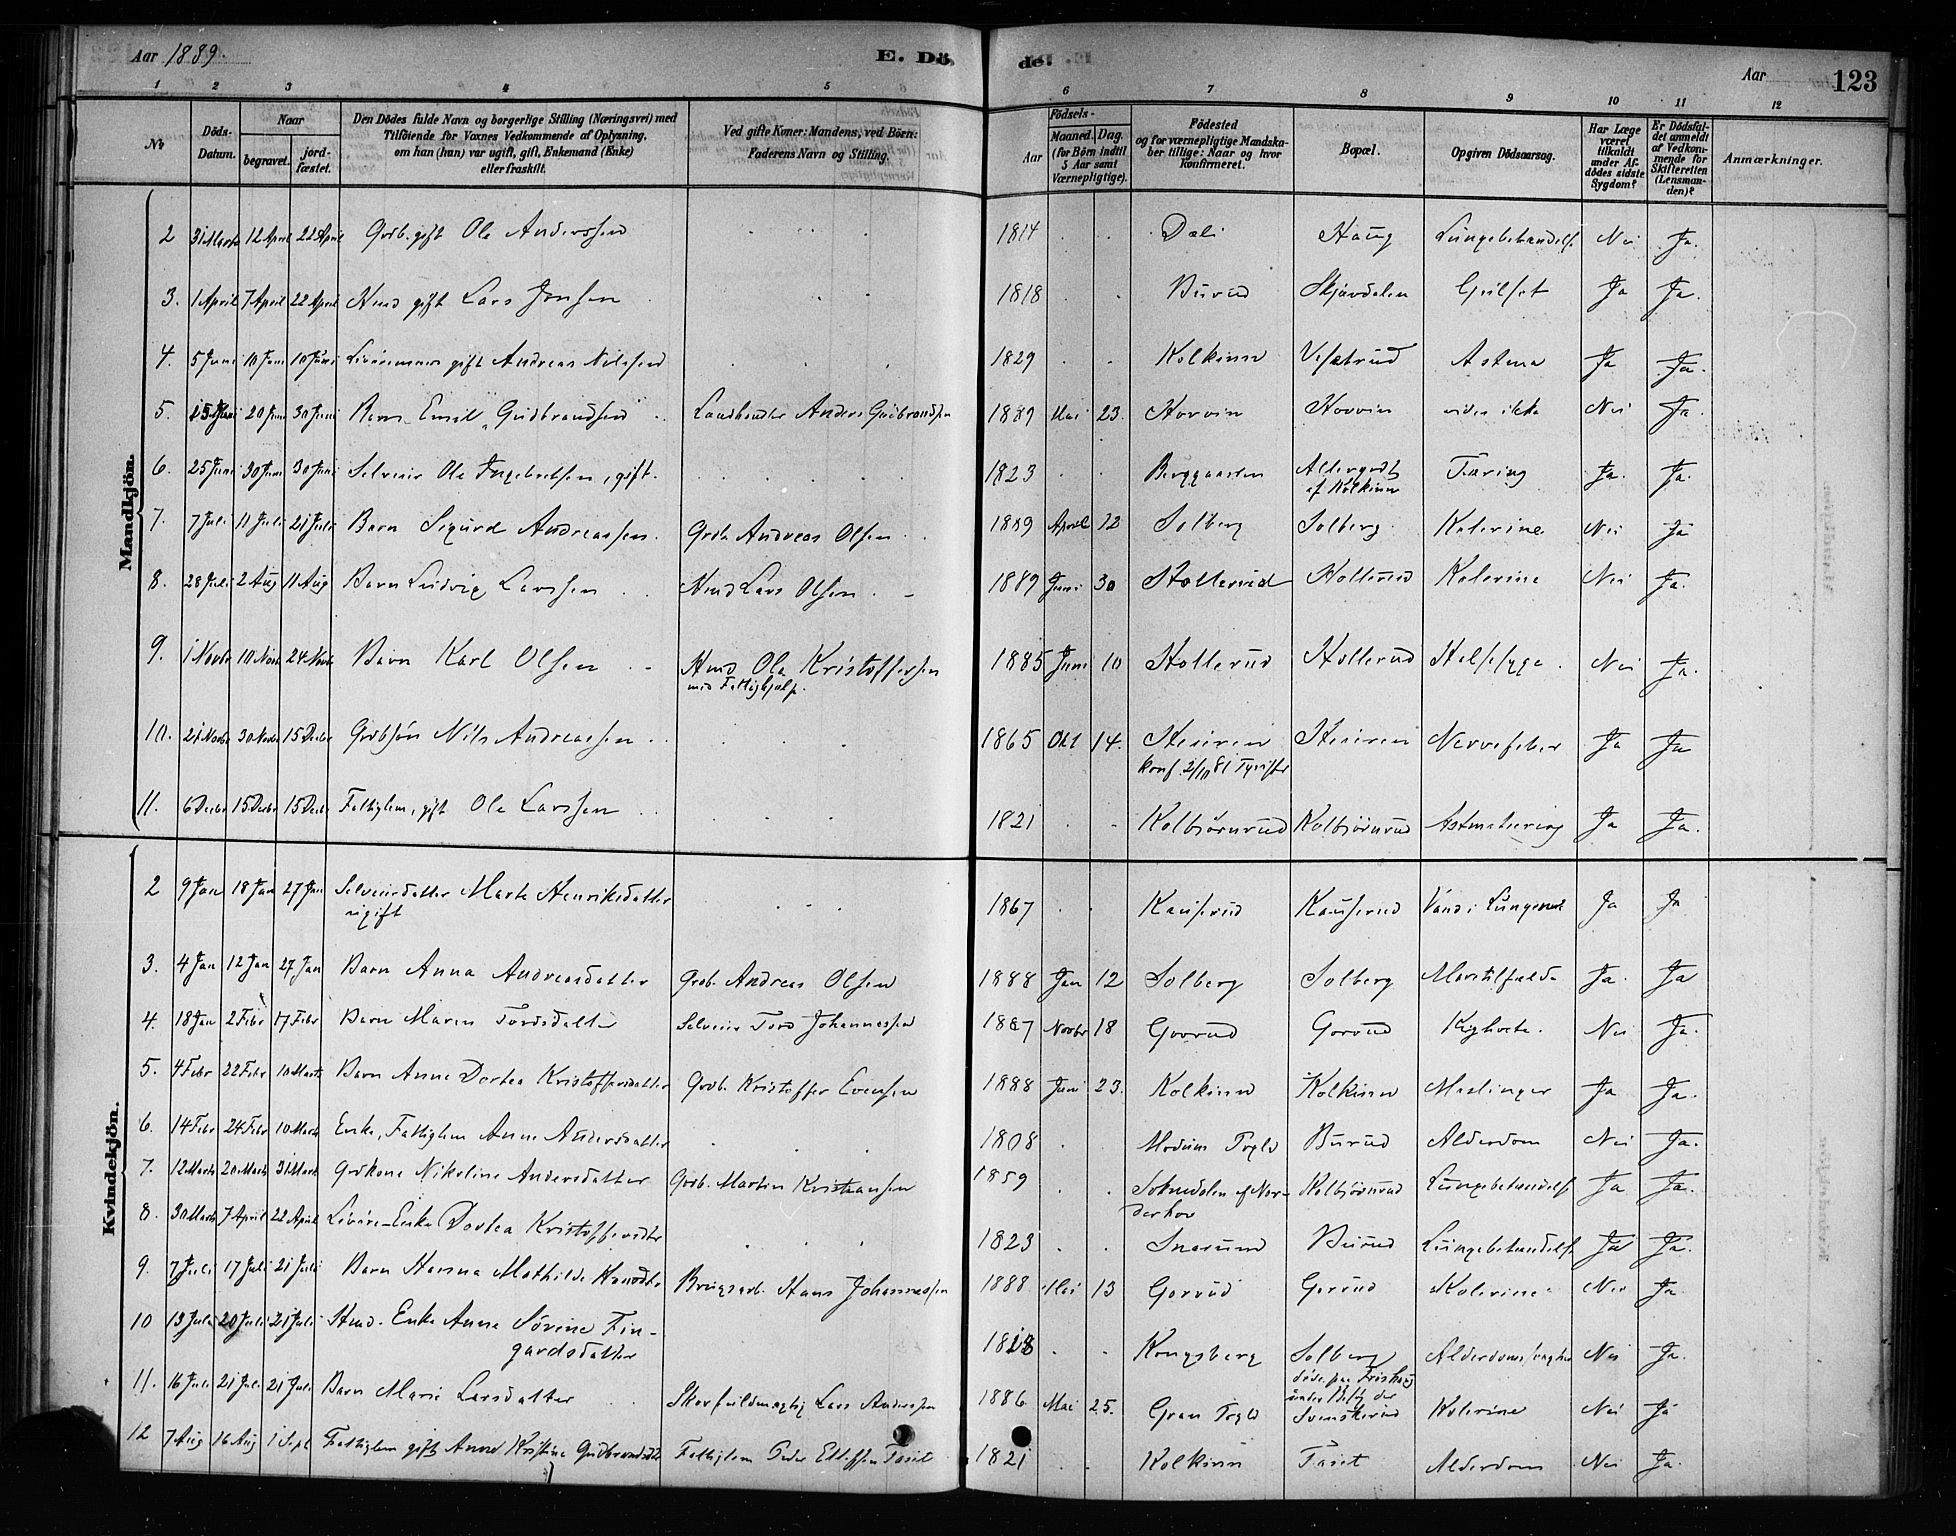 Aar 1889.
E. Dö-
de.
Aar
123
1 2 3 4 5 6 7 8 9 10 11 12
No
Döds-Datum.
Naar
begravet.
jord-fæstet.
Den Dödes fulde Navn og borgerlige Stilling (Næringsvei) med
Tilföiende for Voxnes Vedkommende af Oplysning,
om han (hun) var ugift, gift, Enkemand (Enke)
eller fraskilt.
Ved gifte Koner: Mandens, ved Börn:
Faderens Navn og Stilling.
Födsels-
Aar
Maaned. Dag.
(for Börn indtil
5 Aar samt
Værnepligtige).
Födested
og for værnepligtige Mandska-
ber tillige: Naar og hvor
konfirmeret.
Bopæl.
Opgiven Dödsaarsag.
Har Læge
været
tilkaldt
under Af-
dödes sidste
Sygdom?
Er Dödsfal-
det anmeldt
af Vedkom-
mende for
Skifteretten
(Lensman-
den)?
Anmærkninger.
Mandkjön.
2 31 Marts 12 April 22 April Grdb. gift Ole Anderssen 1814 Dæli Haug Lungebetændelse Nei Ja.
3. 1 April 7 April 22 April Hmd gift Lars Jonsen 1818 Burud Skjærdalen Gulsot Ja Ja.
4. 5 Juni 10 Juni 10 Juni gift Andreas Nilssen 1829 Kolkinn Astma Ja Ja.
5. 15 Juni 20 Juni 30 Juni Barn Emil Gudbrandsen Landhandler Anders Gudbrandsen 1889 Mai 23. Hovvin Hovvin vides ikke Nei Ja.
6. 25 Juni 30 Juni 30 Juni Selveier Ole Ingebretsen, gift. 1823 Berggaarden af Kolkinn Tæring Ja. Ja.
7. 7 Juli 11 Juli 21 Juli Barn Sigurd Andreassen. Grdb. Andreas Olsen 1889 April 12 Solberg Solberg. Kolerine Nei Ja
8. 28 Juli 2 Aug 11 Aug Barn Ludvig Larssen Hmd Lars Olsen. 1889 Juni 30 Hollerud Hollerud Kolerine Nei Ja.
9. 1 Novbr 10 Novb 24 Novb Barn Karl Olsen Hmd Ole Kristoffersen 1885 Juni 10 Hollerud Hollerud Halssyge. Nei Ja.
med Fattighjælp.
10. 21 Novbr 30 Novbr 15 Decbr Grdbsön Nils Andreassen 1865 Okt 14. Nervefeber Ja Ja
konf. 2/10 81 Tyristr
11. 6 Decbr 15 Decbr 15 Decbr Fattiglem, gift Ole Larssen 1821 Kolbjørnrud Kolbjørnrud Ja Ja.
Kvindekjön.
2 9 Jan 18 Jan 27 Jan Selveierdatter Marte Henriksdatter 1867 Kauserud Kauserud Vand i Lungerne Ja Ja
ugift
3. 4 Jan 12 Jan 27 Jan Barn Anna Andreasdatter Grdb. Andreas Olsen 1888 Jan 12 Solberg Solberg Ja. Ja
4. 18 Jan 2 Febr 17 Febr Barn Maren Tordsdatter Selveier Tord Johannessen 1887 Novbr 18 Gorrud Gorrud Kighoste. Nei Ja.
5. 4 Febr 22 Febr 10 Marts Barn Anne Dortea Kristoffersdatter Grdb. Kristoffer Evensen 1888 Juni 23. Kolkinn Kolkinn Meslinger Ja Ja.
6. 14 Febr 24 Febr 10 Marts Enke, Fattiglem Anne Andersdatter 1808 Modum Prgld Burud Alderdom Nei Ja.
7. 12 Marts 20 Marts 31 Marts Grdkone Nikoline Andersdatter Grdb. Martin Kristiansen 1859 Soknedalen af Nor- Kolbjørnrud Lungebetændelse Ja Ja.
derhov
8. 30 Marts 7 April 22 April Enke Dortea Kristoffersdtr 1823 Snarum Burud Lungebetændelse Ja Ja.
9. 7 Juli 17 Juli 21 Juli Barn Hanna Mathilde Hansdtr Brugsarb. Hans Johannessen 1888 Mai 13 Gorrud Gorrud Kolerine Nei Ja.
10 13 Juli 20 Juli 21 Juli Hmd. Enke Anne Sørine Fin- 1818 Kongsberg Solberg Nei Ja.
gardsdatter
11. 16 Juli 21 Juli 21 Juli Barn Marie Larsdatter Skovfuldmægtig Lars Anderssen 1886 Mai 25. Gran Prgld Svenskerud Kolerine Nei Ja
12 7 Aug 16 Aug 1 Sept Fattiglem gift Anne Kristine Gudbrandsdtr Fattiglem Peder Ellefsen Tøset 1821 Kolkinn Tøset Alderdom Nei Ja.